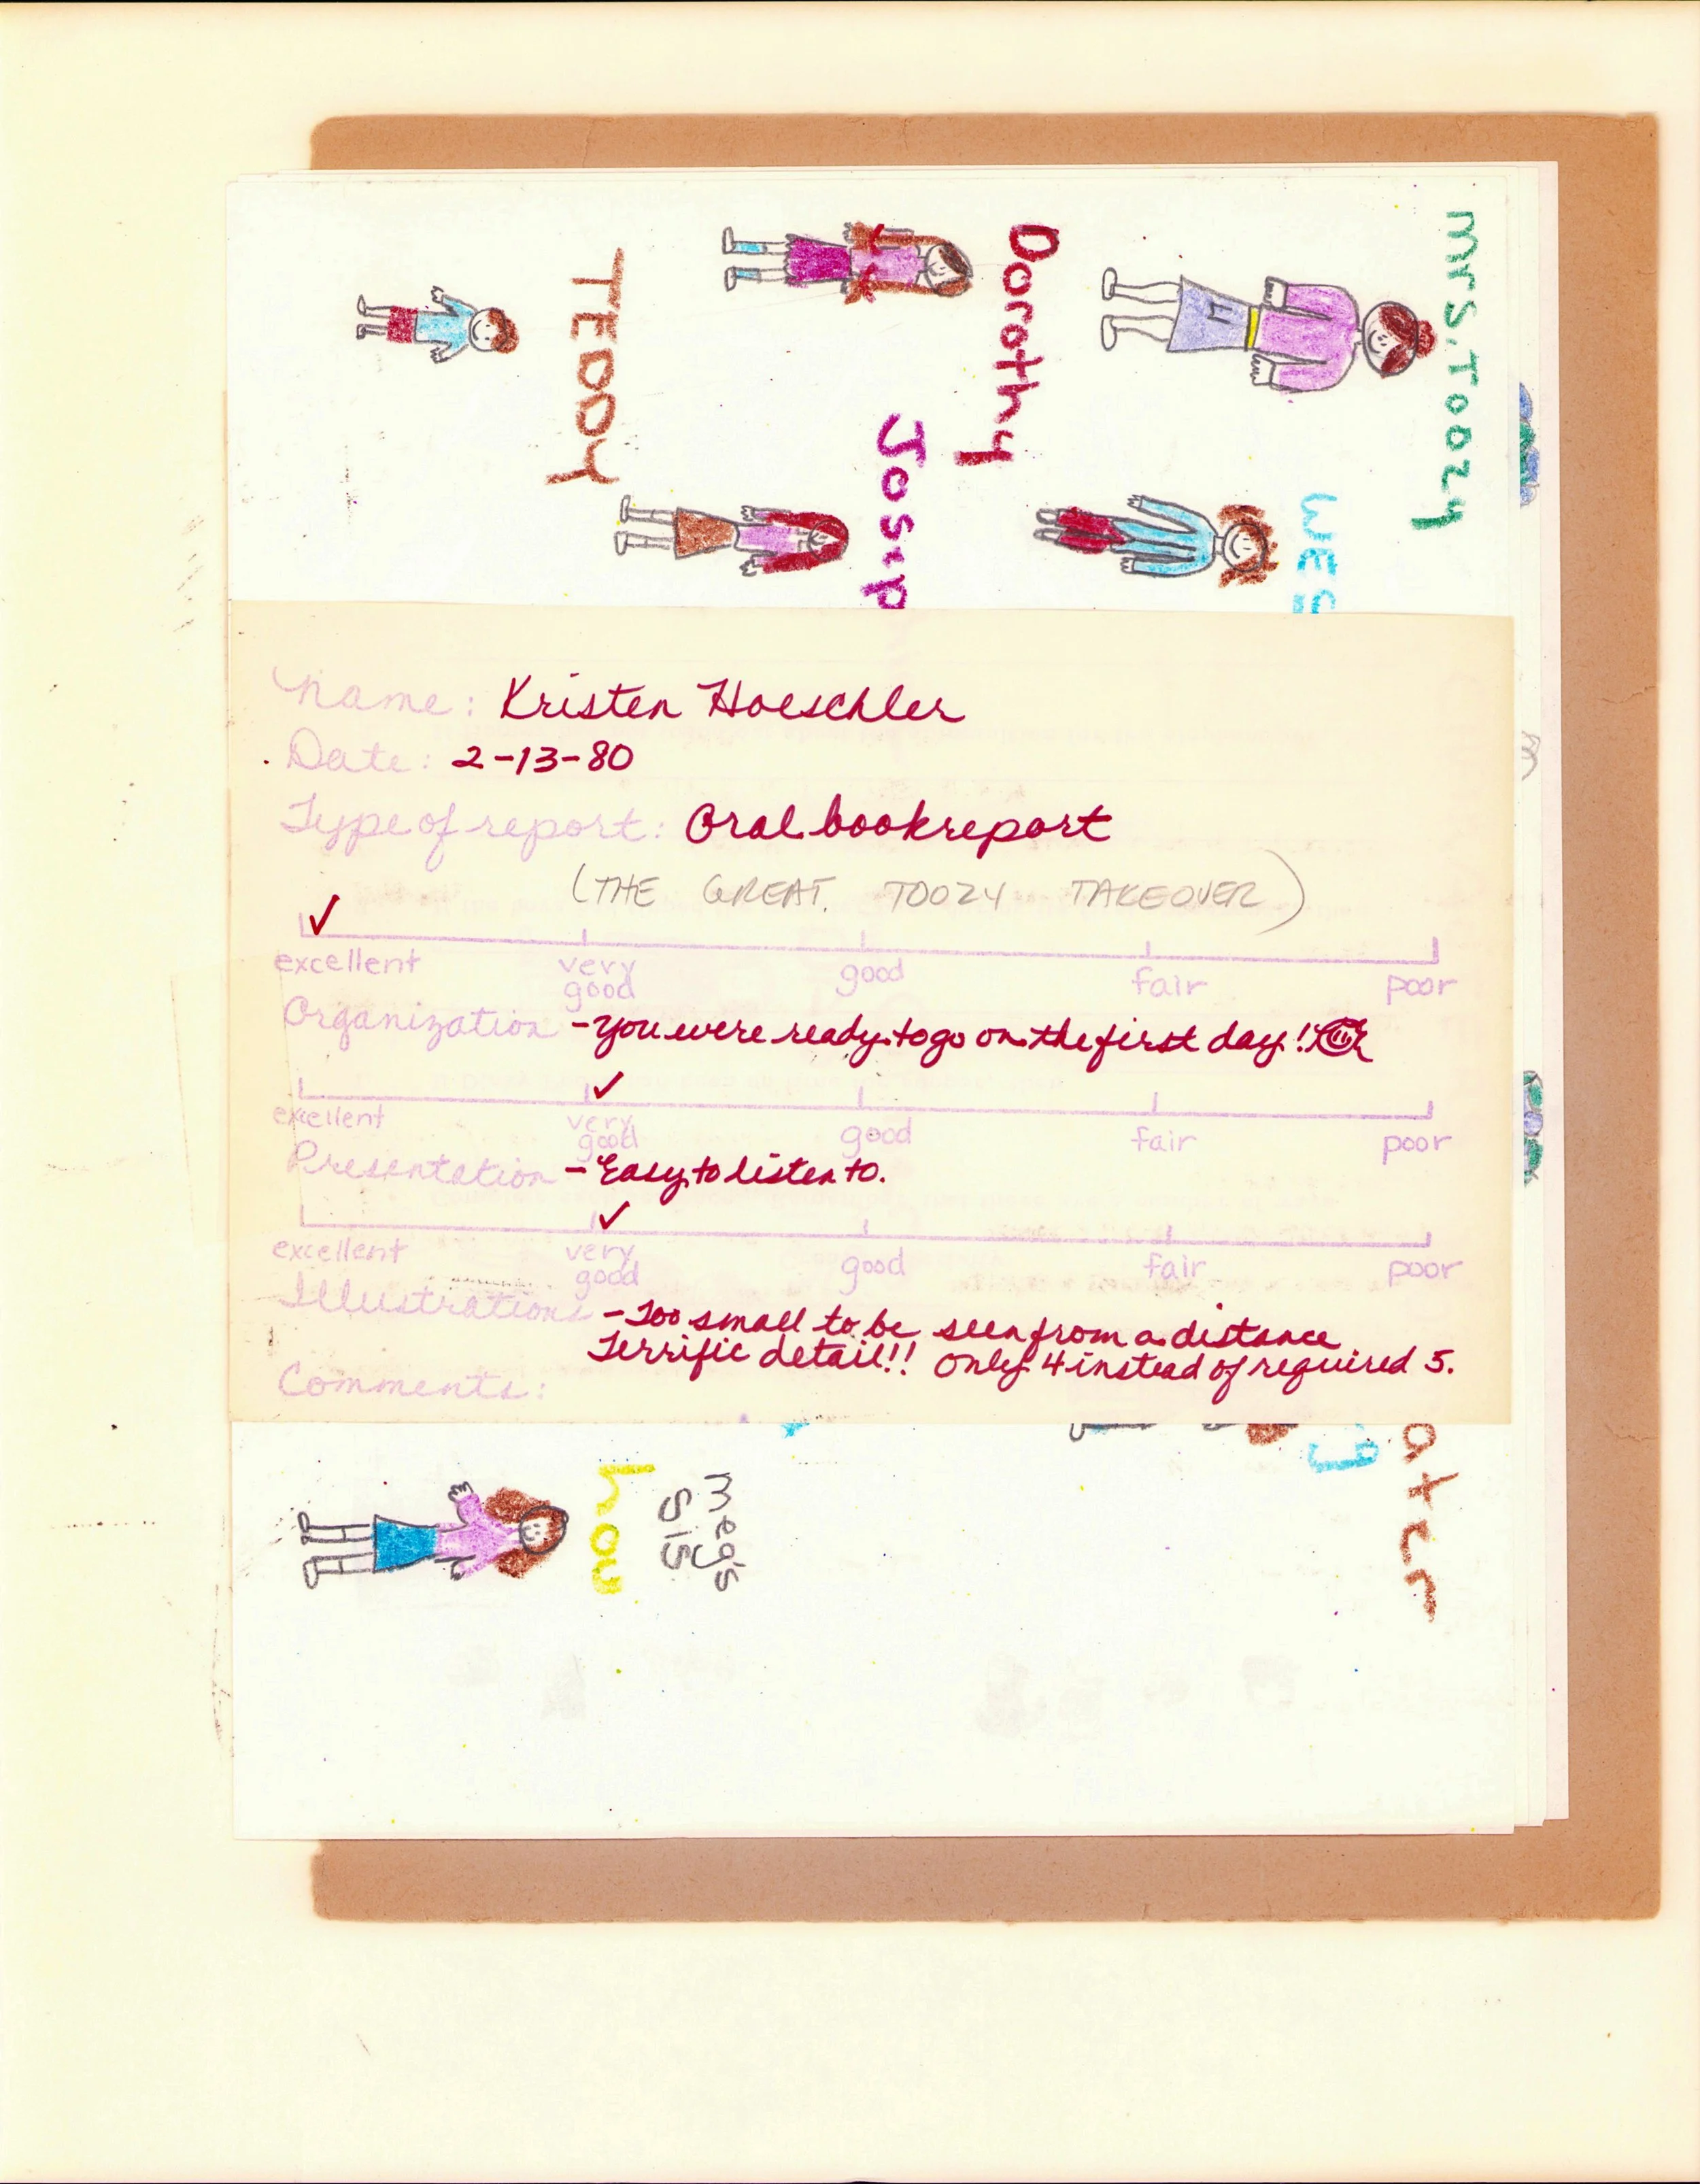 Mrs. Toozy
Dorothy
TEDDY
WES
Josip
Name: Kristen Hoeschler
Date: 2-13-80
Type of report: Oral bookreport
(THE GREAT TOOZY TAKEOVER)
excellent very good good fair poor
Organization - You were ready to go on the first day!
excellent very good good fair poor
Presentation - Easy to listen to.
excellent very good good fair poor
Illustrations - Too small to be seen from a distance
Terrific detail!! Only 4 instead of required 5.
Comments:
meg's
SIS